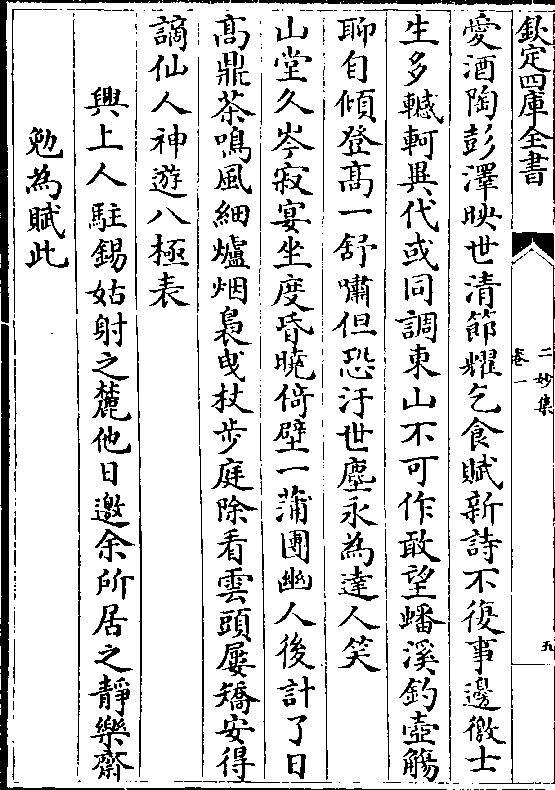 欽定四庫全書
二妙集
卷一
五
愛酒陶彭澤映世清節耀乞食賦新詩不復事邊徼士
生多轗軻異代或同調東山不可作敢望蟠溪釣壺觴
聊自傾登髙一舒嘯但恐汙世塵永為達人笑
山堂久岑寂宴坐度昏曉倚壁一蒲團幽人後計了日
髙鼎茶鳴風細爐烟裊曳杖步庭除看雲頭屢矯安得
謫仙人神遊八極表
興上人駐錫姑射之麓他日邀余所居之靜樂齋
勉為賦此